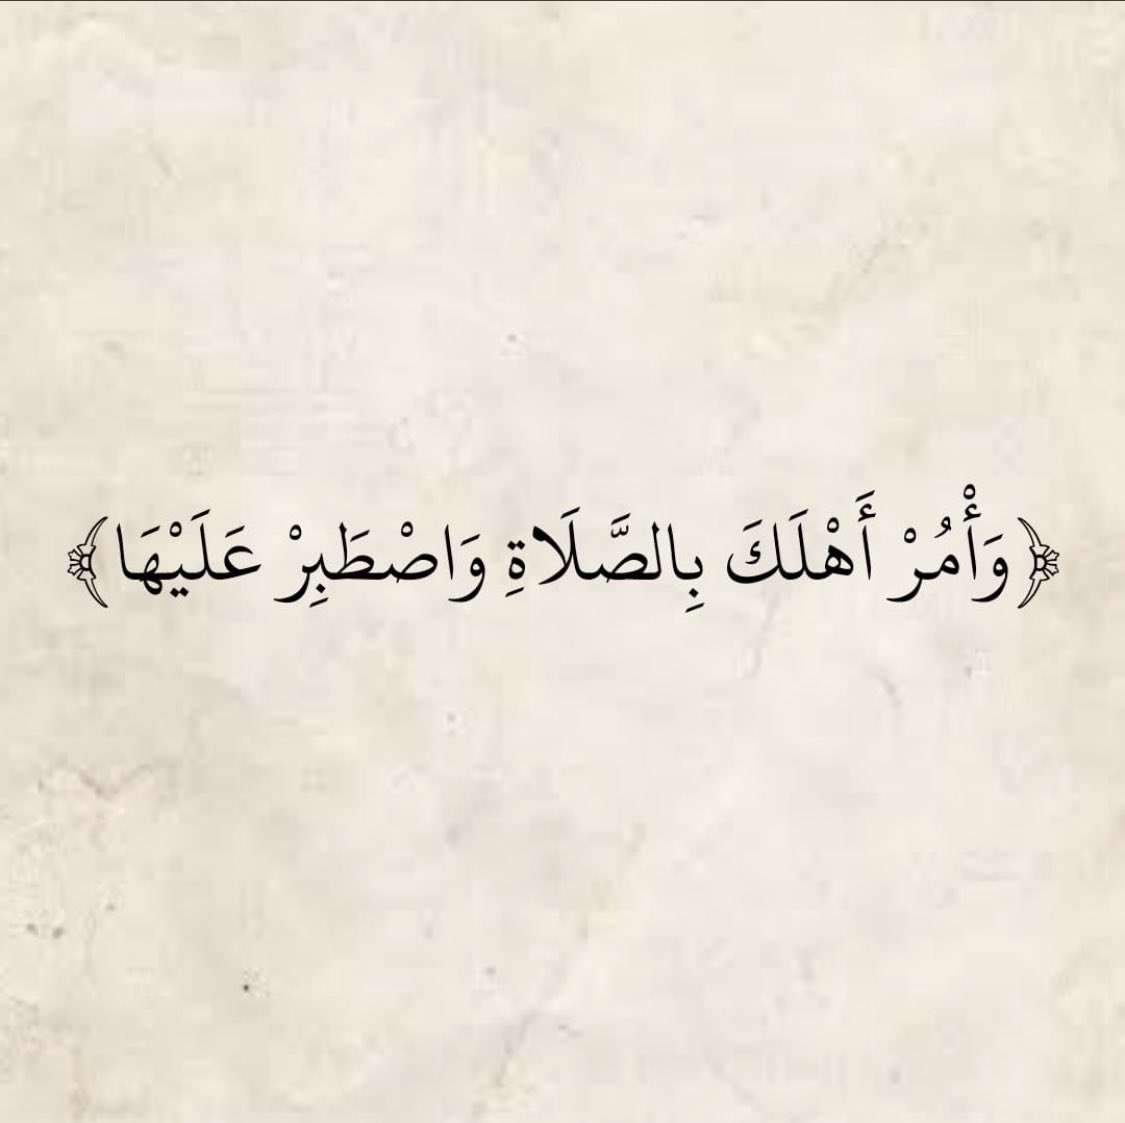 ﴿وَأْمُرْ أَهْلَكَ بِالصَّلَاةِ وَاصْطَبِرْ عَلَيْهَا﴾